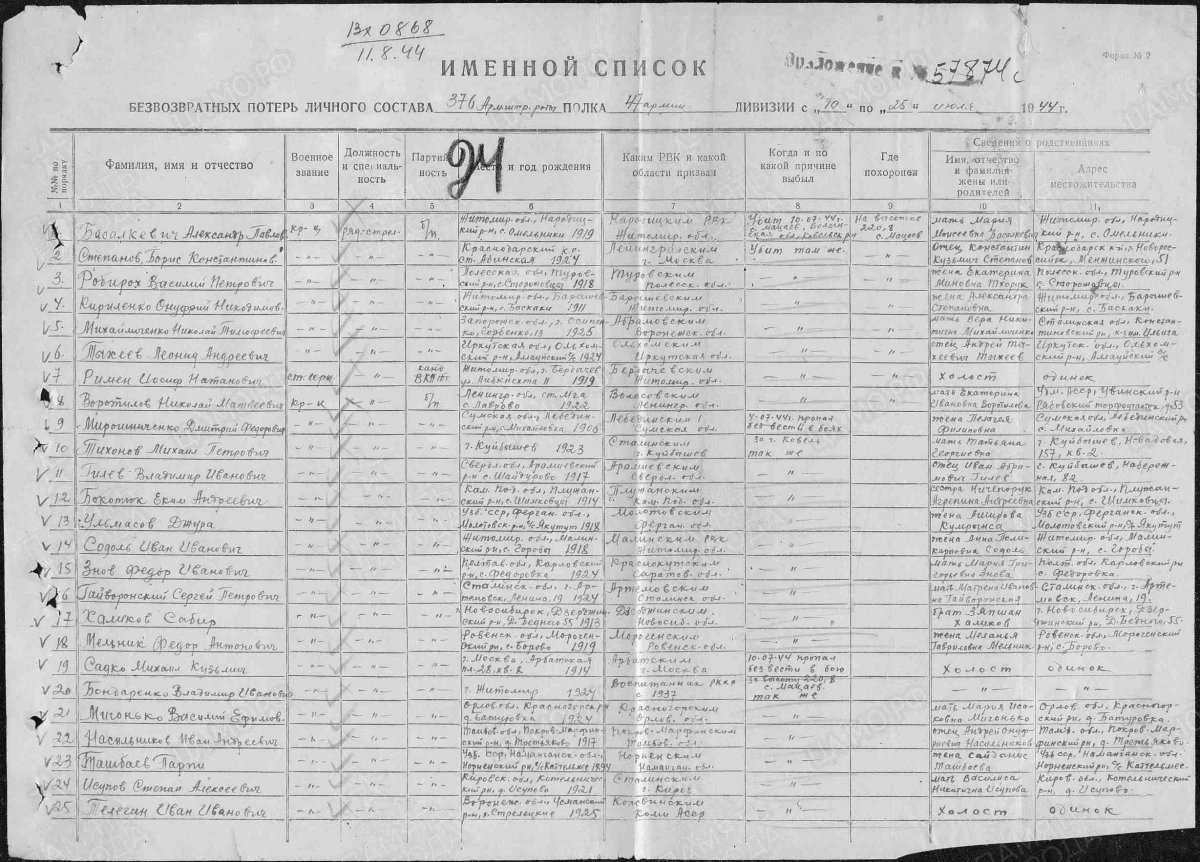 Вх 0868
11.8.44
ИМЕННОЙ СПИСОК
Приложение к № 57874с
Форма № 2
БЕЗВОЗВРАТНЫХ ПОТЕРЬ ЛИЧНОГО СОСТАВА 376 роты ПОЛКА 47 армии ДИВИЗИИ с „10“ по „25“ июля 1944 г.
24
№№ по порядку
Фамилия, имя и отчество
Военное звание
Должность и специальность
Партийность
Место и год рождения
Каким РВК и какой области призван
Когда и по какой причине выбыл
Где похоронен
Сведения о родственниках
Имя, отчество и фамилия жены или родителей
Адрес местожительства
1 2 3 4 5 6 7 8 9 10 11
1 Басалкевич Александр Павлов. кр-ц рядстрел. б/п Житомир. обл., Народицкий р-н, с. Омельники 1919 Народицким РВК Житомир. обл. Убит 10-07-44г. На высотке 220,8 с. Мацеев мать Мария Моисеевна Басалкевич Житомир. обл., Народицкий р-н, с. Омельники.
2 Степанов, Борис Константинов -"- -"- -"- Краснодарский кр. ст. Абинская 1924 Ленинградским г. Москва Убит там же. -"- отец Константин Кузьмич Степанов
3. Василий Петрович -"- -"- -"- Полесская обл., Туровский р-н, 1918 Туровским Полесск. обл. -"- -"- жена Екатерина Миновна Полесск. обл., Туровский р-н
4. Кириленко Онуфрий Никодимов. -"- -"- -"- Житомир. обл., Барашевский р-н, с. Баскаки 1911 Барашевским Житомир. обл. -"- -"- жена Александра Степановна Житомир. обл., Барашевский р-н, с. Баскаки.
5- Михайличенко Николай Тимофеевич -"- -"- -"- Запорожск. обл., г. Осипенко, 13 1925 Абрамовским Воронежск. обл. -"- -"- мать Вера Никитична Михайличенко Сталинская обл.
6 Тыхеев Леонид Андреевич -"- -"- -"- Иркутская обл., Ольхонский р-н, 1924 Ольхонским Иркутская обл. -"- -"- отец Андрей Тыхеевич Тыхеев Иркутск. обл., Ольхонский р-н
7 Римен Иосиф Натанович ст. серж. -"- канд ВКПб Житомир. обл., г. Бердичев ул. Либкнехта 11 1919 Бердичевским Житомир. обл. -"- -"- холост одинок
8 Воротилов Николай Матвеевич кр-ц -"- б/п Ленингр. обл., ст. Мга с. Лаврово 1922 Волосовским Ленингр. обл. -"- -"- мать Екатерина Ивановна Воротилова Удм. АССР, Увинский р-н
9 Мирошниченко Дмитрий Федорович -"- -"- -"- Сумская обл., Лебединский р-н, с. Михайловка 1906 Лебединским Сумская обл. 7-07-44г. пропал без вести в боях за г. Ковель жена Пелагея Филиповна Сумская обл., Лебединский р-н, с. Михайловка
10 Тихонов Михаил Петрович -"- -"- -"- г. Куйбышев 1923 Сталинским г. Куйбышев так же мать Татьяна Георгиевна г. Куйбышев, 157, кв-2.
11 Гилев Владимир Иванович -"- -"- -"- Сверл. обл., Арамилевский р-н с. Шайдурово 1917 Арамилевским Сверл. обл. -"- отец Иван Абрамович Гилев г. Куйбышев, Набережная, 82
12 -"- -"- -"- Кам. Под. обл., 1914 Кам. Под. обл. -"- сестра Ничепорук Агрепина Андреевна Кам. Под обл.
13. Ульмасов Джура -"- -"- -"- Узб. ССР, Ферган. обл., Молотовск. р-н, с/с Якутут 1918 Молотовским Ферган. обл. -"- жена Аширова Узб ССР, Ферганск. обл., Молотовский р-н, с/с Якутут
14 Содоль Иван Иванович -"- -"- -"- Житомир. обл., Малинский р-н, с. Гороры 1918 Малинским РВК Житомир. обл. -"- жена Анна Поликарповна Содоль Житомир. обл., Малинский р-н, с. Гороры.
15 Знов Федор Иванович -"- -"- -"- Полтав. обл., Карловский р-н, с. Федоровка 1924 Краснокутским Саратов. обл. -"- мать Мария Григорьевна Знова Полт. обл., Карловский р-н с. Федоровка.
16 Гайворонский Сергей Петрович -"- -"- -"- Сталинск. обл., г. Артемовск, Ленина, 19 1924 Артемовским Сталинск обл. -"- мать Матрена Ивановна Гайворонская Сталинск. обл., г. Артемовск, Ленина, 19.
17 Халиков Сабир -"- -"- -"- г. Новосибирск, Дзержинский р-н, Д. Бедного 55 1913 Дзержинским Новосиб. обл. -"- брат Халиков г. Новосибирск, Дзержинский р-н, Д. Бедного, 55.
18 Мельник Федор Антонович -"- -"- -"- Ровенск. обл., Морогенский р-н, с. Борово 1919 Морогенским Ровенск. обл. -"- жена Меланья Гавриловна Мельник Ровенск. обл., Морогенский р-н, с. Борово.
19 Садко Михаил Кузьмич -"- -"- -"- г. Москва, Арбатская пл. 28, кв. 2 1914 Арбатским г. Москва 10-07-44 пропал без вести в бою за высоту 220,8 с. Мацаев холост одинок
20 Бондаренко Владимир Иванович -"- -"- -"- г. Житомир 1924 Воспитанник РККА с 1937 так же -"- -"-
21 Мигонько Василий Ефимов. -"- -"- -"- Орлов обл., Красногорск. р-н д. Батуровка 1924 Красногорским Орлов. обл. -"- мать Мария Исаковна Мигонько Орлов. обл., Красногорский р-н, д. Батуровка.
22 Насильников Иван Андреевич -"- -"- -"- Тамбов. обл., Покров-Марфинский р-н, д. Третьяково 1917 Покров-Марфинским Тамбов. обл. -"- отец Андрей Онуфриевич Насильников Тамб. обл., Покров-Марфинский р-н, д. Третьяково.
23 Ташбаев Парпи -"- -"- -"- Узб. ССР, Наманганск. обл., Норненский р-н 1894 Норненским Наманган. обл. -"- жена Ташбаева Узб ССР, Наманганск. обл., Норненский р-н
24 Исупов Степан Алексеевич -"- -"- -"- Кировск. обл., Котельнический р-н, д. Исупово 1921 Сталинским г. Киров -"- мать Василиса Никитична Исупова Киров. обл., Котельнический р-н, д. Исупово.
25 Телегин Иван Иванович -"- -"- -"- Воронеж. обл., Усманский р-н, с. Стрелецкие 1925 Коми Асср -"- холост одинок